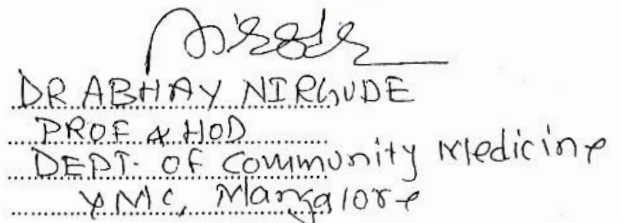 DR ABHAY NIRGUDE
PROF & HOD
DEPT. OF Community Medicine
YMC, Mangalore